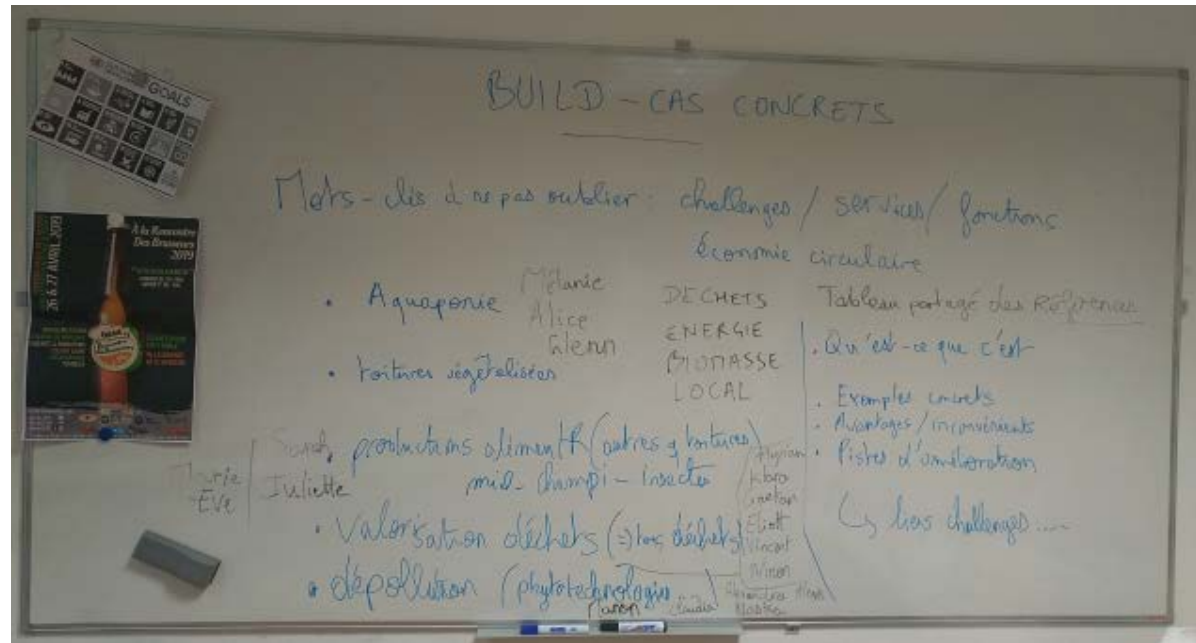 GOALS
À la Rencontre
Des Brasseurs
2019
26 & 27 AVRIL 2019
BUILD - CAS CONCRETS
Mots-clés à ne pas oublier : challenges / services / fonctions
économie circulaire
• Aquaponie
Mélanie
Alice
Glenn
• toitures végétalisées
DECHETS
ENERGIE
BIOMASSE
LOCAL
Marie
Eve
Sarah
Juliette
productions aliment (autres q toitures)
miel - champi - insectes
• Valorisation déchets (=> tous déchets)
• dépollution (phytotechnologies)
Gaetan
Eliott
Vincent
Ninon
Manon
Claudia
Alexandra
Tableau partagé des Références
• Qu'est-ce que c'est
• Exemples concrets
• Avantages / inconvénients
• Pistes d'amélioration
↳ liens challenges.....